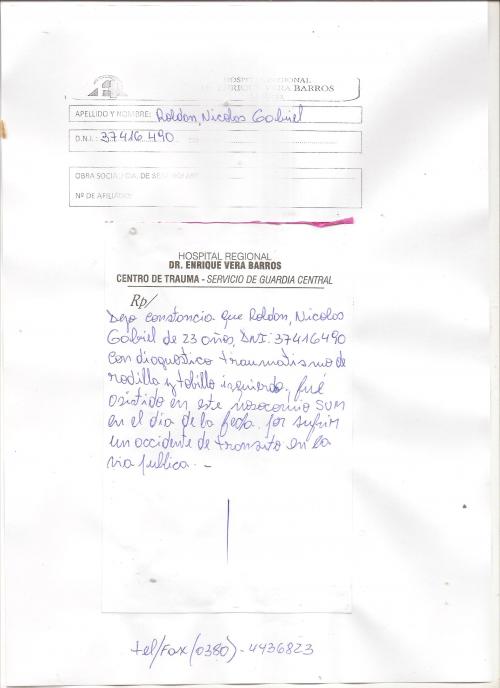 HOSPITAL REGIONAL
DR. ENRIQUE VERA BARROS
APELLIDO Y NOMBRE: Roldan, Nicolas Gabriel
D.N.I.: 37416490
OBRA SOCIAL
Nº DE AFILIADO
HOSPITAL REGIONAL
DR. ENRIQUE VERA BARROS
CENTRO DE TRAUMA - SERVICIO DE GUARDIA CENTRAL
Rp/
Dejo constancia que Roldan, Nicolas
Gabriel de 23 años, DNI: 37416490
con diagnostico traumatismo de
rodilla y tobillo izquierdo, fué
asistido en este nosocomio SUM
en el dia de la fecha por sufrir
un accidente de transito en la
via publica. -
tel/Fax (0380) - 4436823